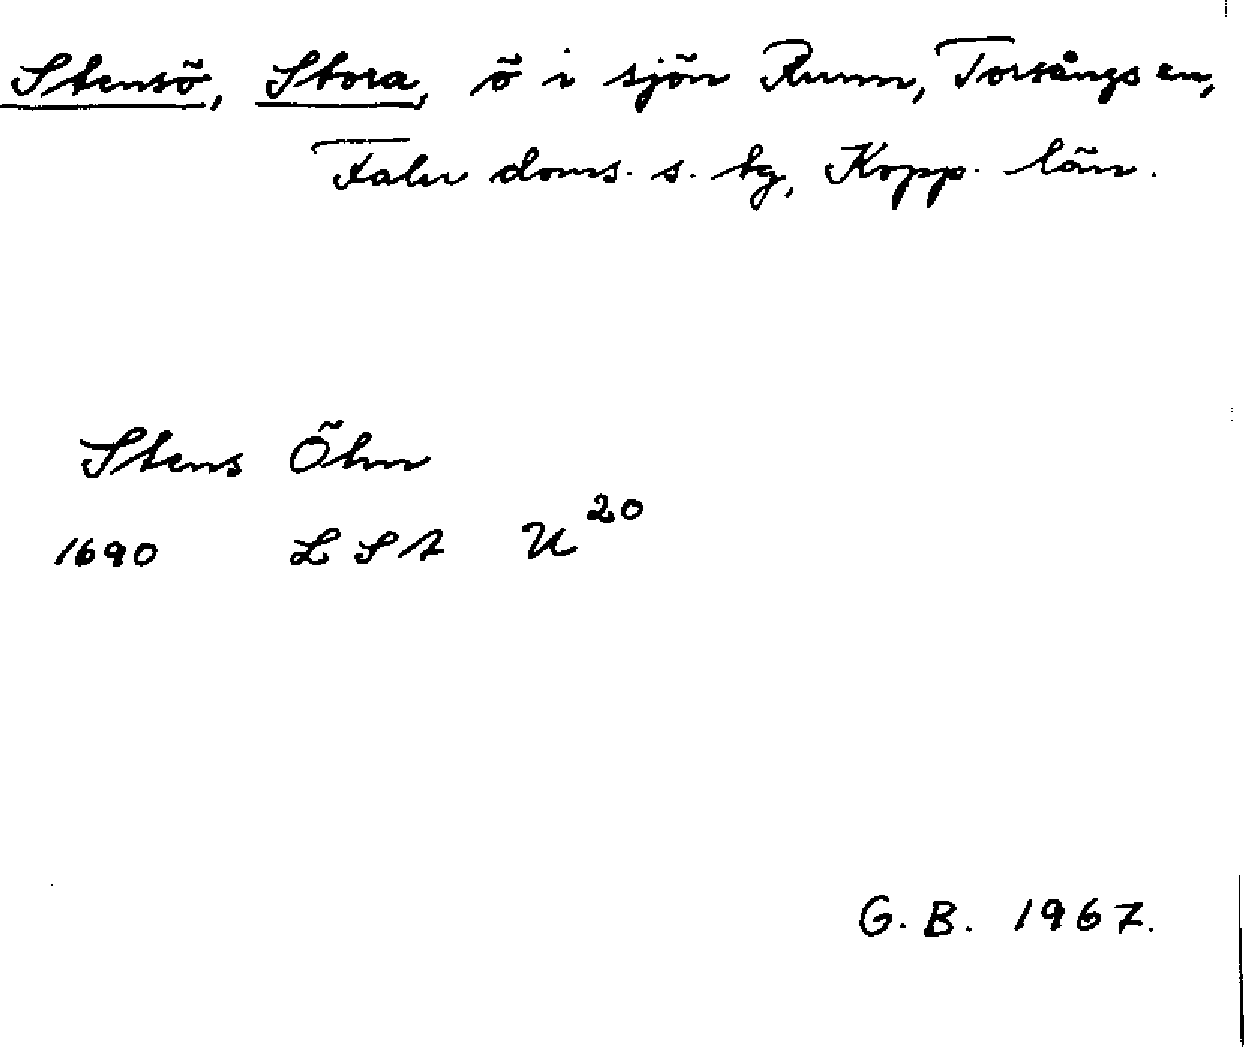 Stensö, Stora, ö i sjön Runn, Torsångs sn,
Falu doms. s. tg, Kopp. län.
Stens Öhn
1690 LSA U²⁰
G. B. 1967.